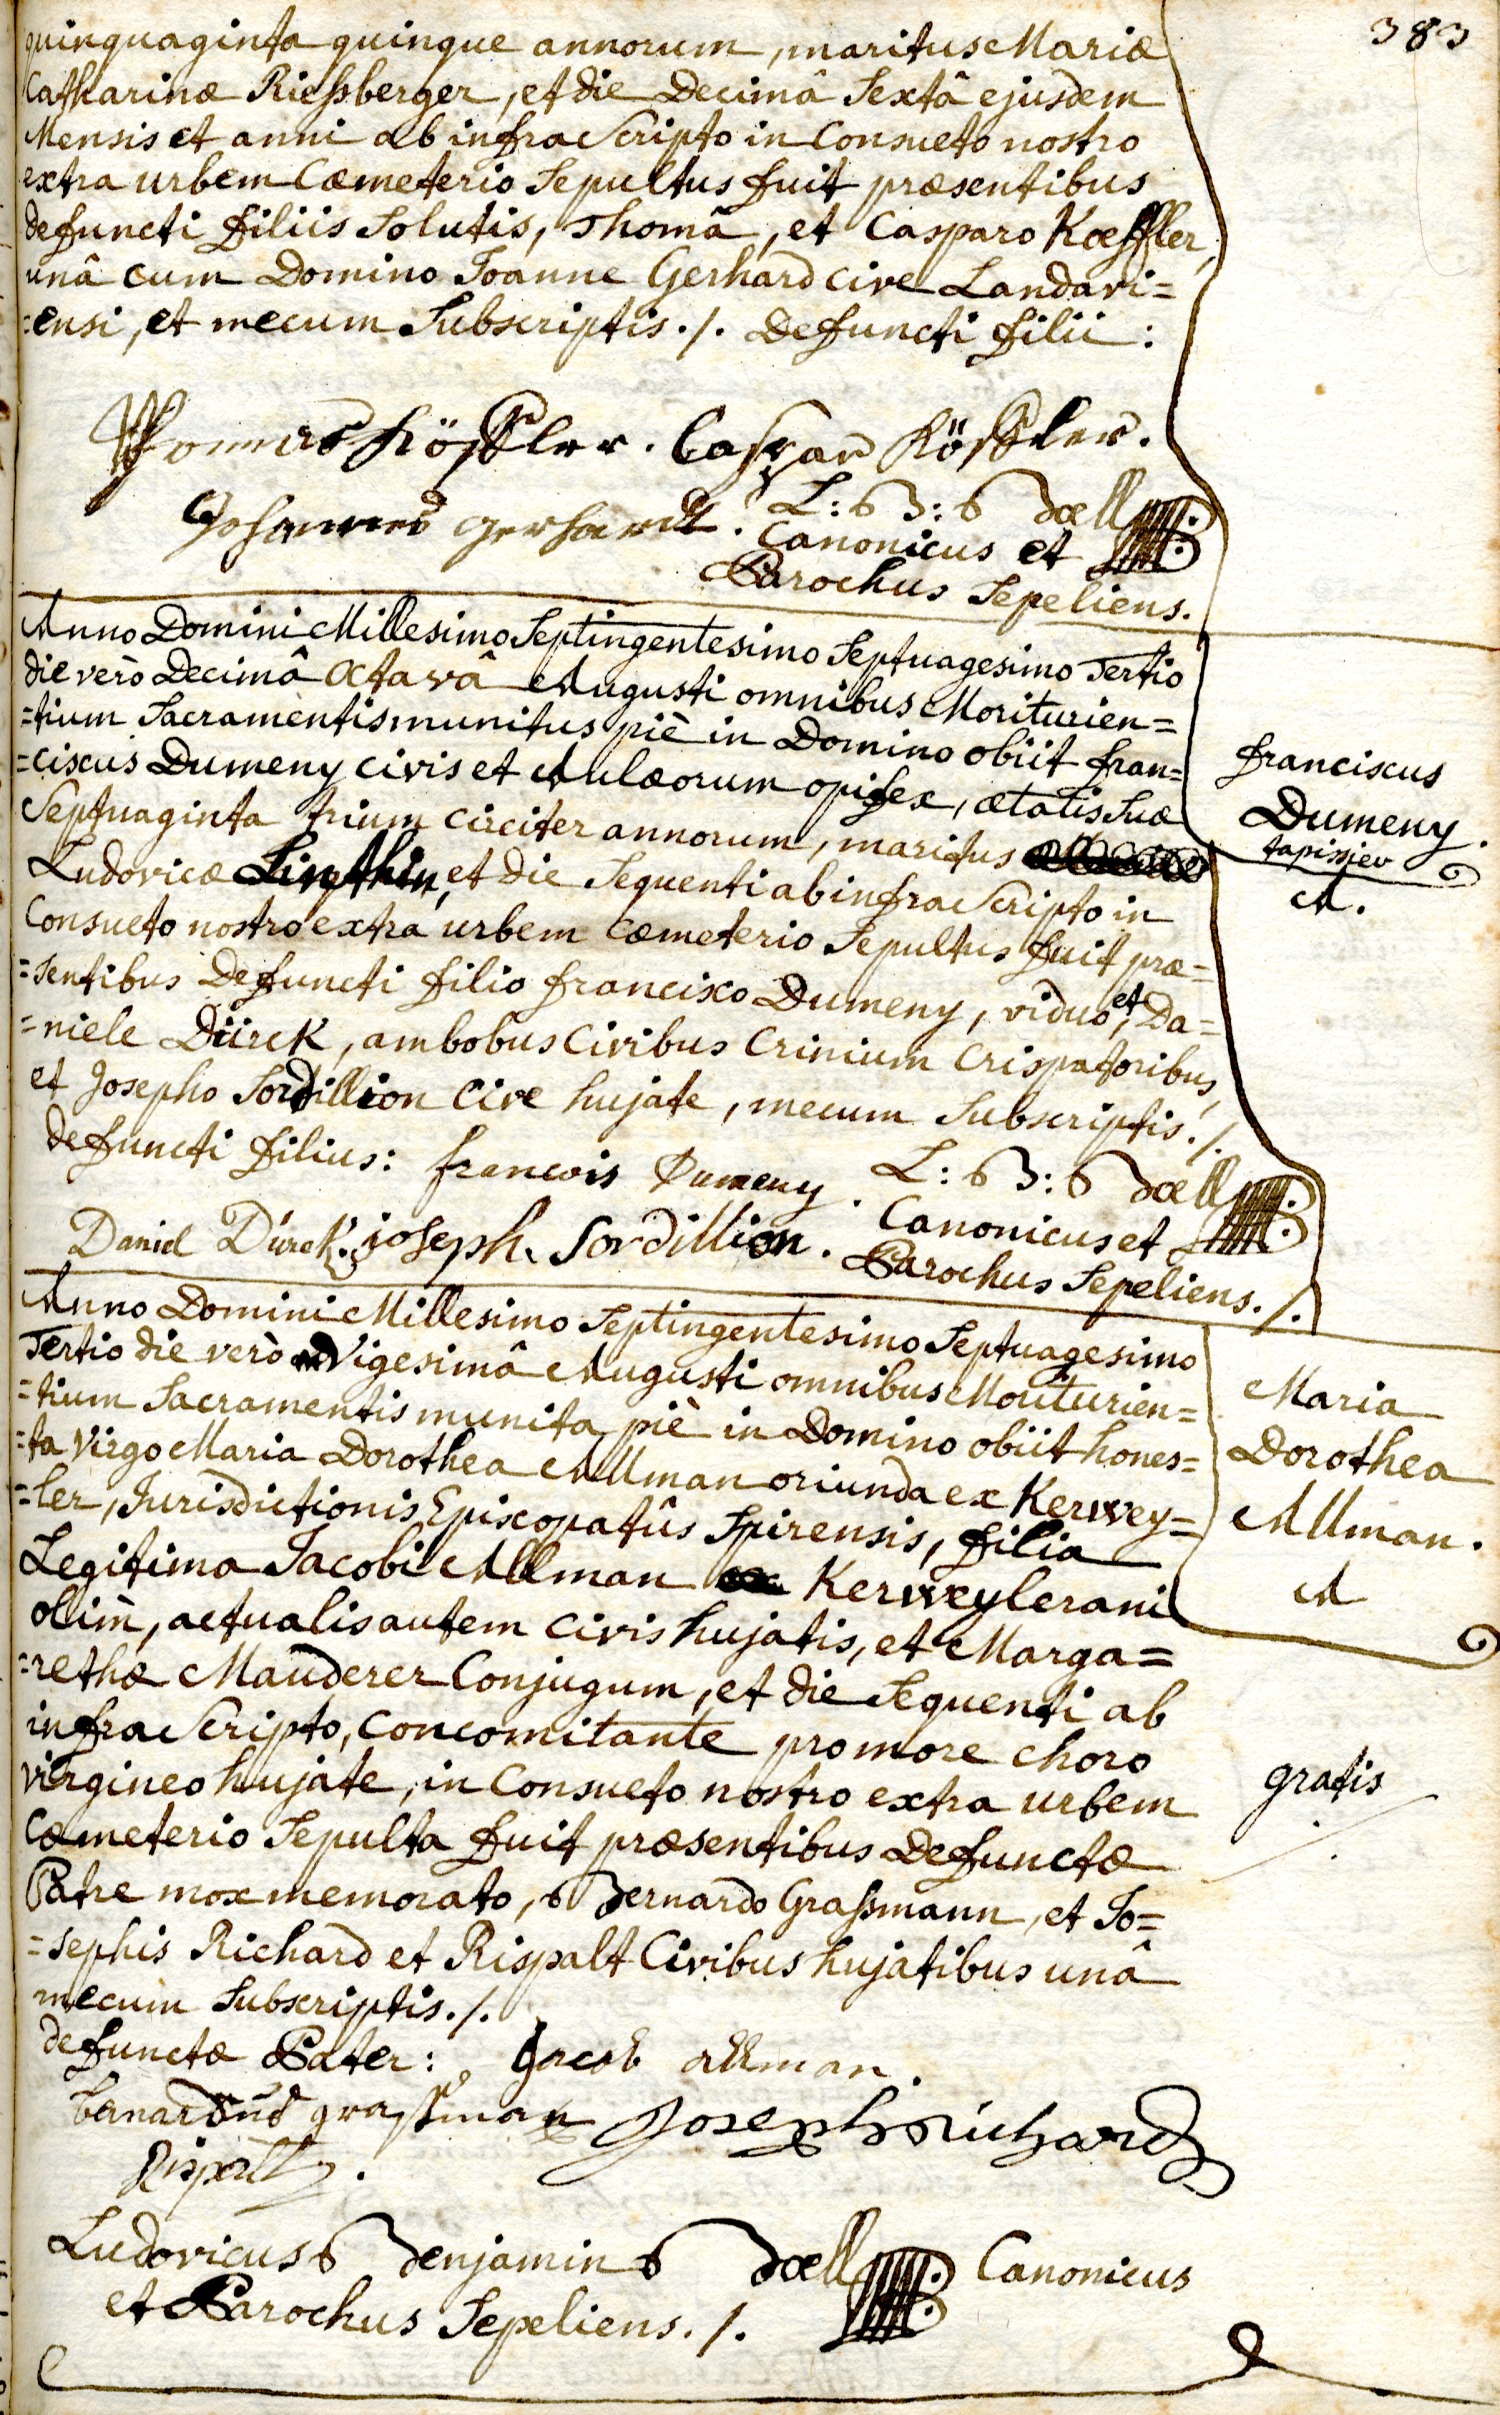 383
quinquaginta quinque annorum, maritus Mariæ
Catharinæ Riessberger, et die Decimâ Sextâ ejusdem
Mensis et anni ab infra Scripto in Consueto nostro
extra urbem Cœmeterio Sepultus fuit præsentibus
defuncti filiis Solutis, Thomâ, et Casparo Kœffler,
unâ cum Domino Joanne Gerhard cive Landavi=
=ensi, et mecum Subscriptis./. Defuncti filii:
Thomas Kößler. Caspar Kößler.
Johannes Gerhardt. L: B: Bœll
Canonicus et
Parochus Sepeliens.
Anno Domini Millesimo Septingentesimo Septuagesimo Tertio
die verò Decimâ Octavâ Augusti omnibus Moriturien=
=tium Sacramentis munitus piè in Domino obiit fran=
=ciscus Dumeny civis et Aulæorum opifex, ætatis Suæ
Septuaginta trium circiter annorum, maritus
Ludovicæ et die Sequenti ab infra Scripto in
Consueto nostro extra urbem Cœmeterio Sepultus fuit præ=
=sentibus Defuncti filio francisco Dumeny, viduo, et Da=
=niele Dürck, ambobus Civibus Crinium Crispatoribus,
et Josepho Sordillion Cive hujate, mecum Subscriptis./.
defuncti filius: francois Dumeny. L: B: Bœll
Daniel Dürck. joseph Sordillion. Canonicus et
Parochus Sepeliens./.
franciscus
Dumeny.
tapissier
A.
Anno Domini Millesimo Septingentesimo Septuagesimo
Tertio die verò Vigesimâ Augusti omnibus Moriturien=
=tium Sacramentis munita piè in Domino obiit hones=
=ta Virgo Maria Dorothea Allman oriunda ex Kerwey=
=ler, Jurisdictionis Episcopatûs Spirensis, filia
Legitima Jacobi Allman Kerweylerani
olim, actualis autem Civis hujatis, et Marga=
=rethæ Mauderer Conjugum, et die Sequenti ab
infra Scripto, Concomitante pro more choro
virgineo hujate, in Consueto nostro extra urbem
Cœmeterio Sepulta fuit præsentibus Defunctæ
Patre mox memorato, Bernardo Grassmann, et Jo=
=sephis Richard et Rispalt Civibus hujatibus unâ
mecum Subscriptis./.
defunctæ Pater: Jacob allman.
bernardus grassman Joseph Richard
Rispalt.
Ludovicus Benjamin Bœll Canonicus
et Parochus Sepeliens./.
Maria
Dorothea
Allman.
A
gratis